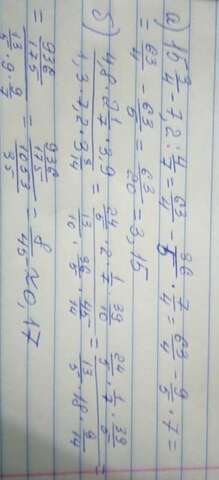 a) 15 3/4 - 7,2 : 4/7 = 63/4 - 36/5 · 7/4 = 63/4 - 9/5 · 7 =
= 63/4 - 63/5 = 63/20 = 3,15
б) (4,8 · 2 1/7 · 3,9)/(1,3 · 7,2 · 3 3/14) = (24/5 · 2 · 1/7 · 39/10)/(13/10 · 36/5 · 45/14) = (24/5 · 1/7 · 39/5)/(13/5 · 18 · 9/14) =
= (936/175)/(13/5 · 9 · 9/7) = (936/175)/(1053/35) = 8/45 ≈ 0,17